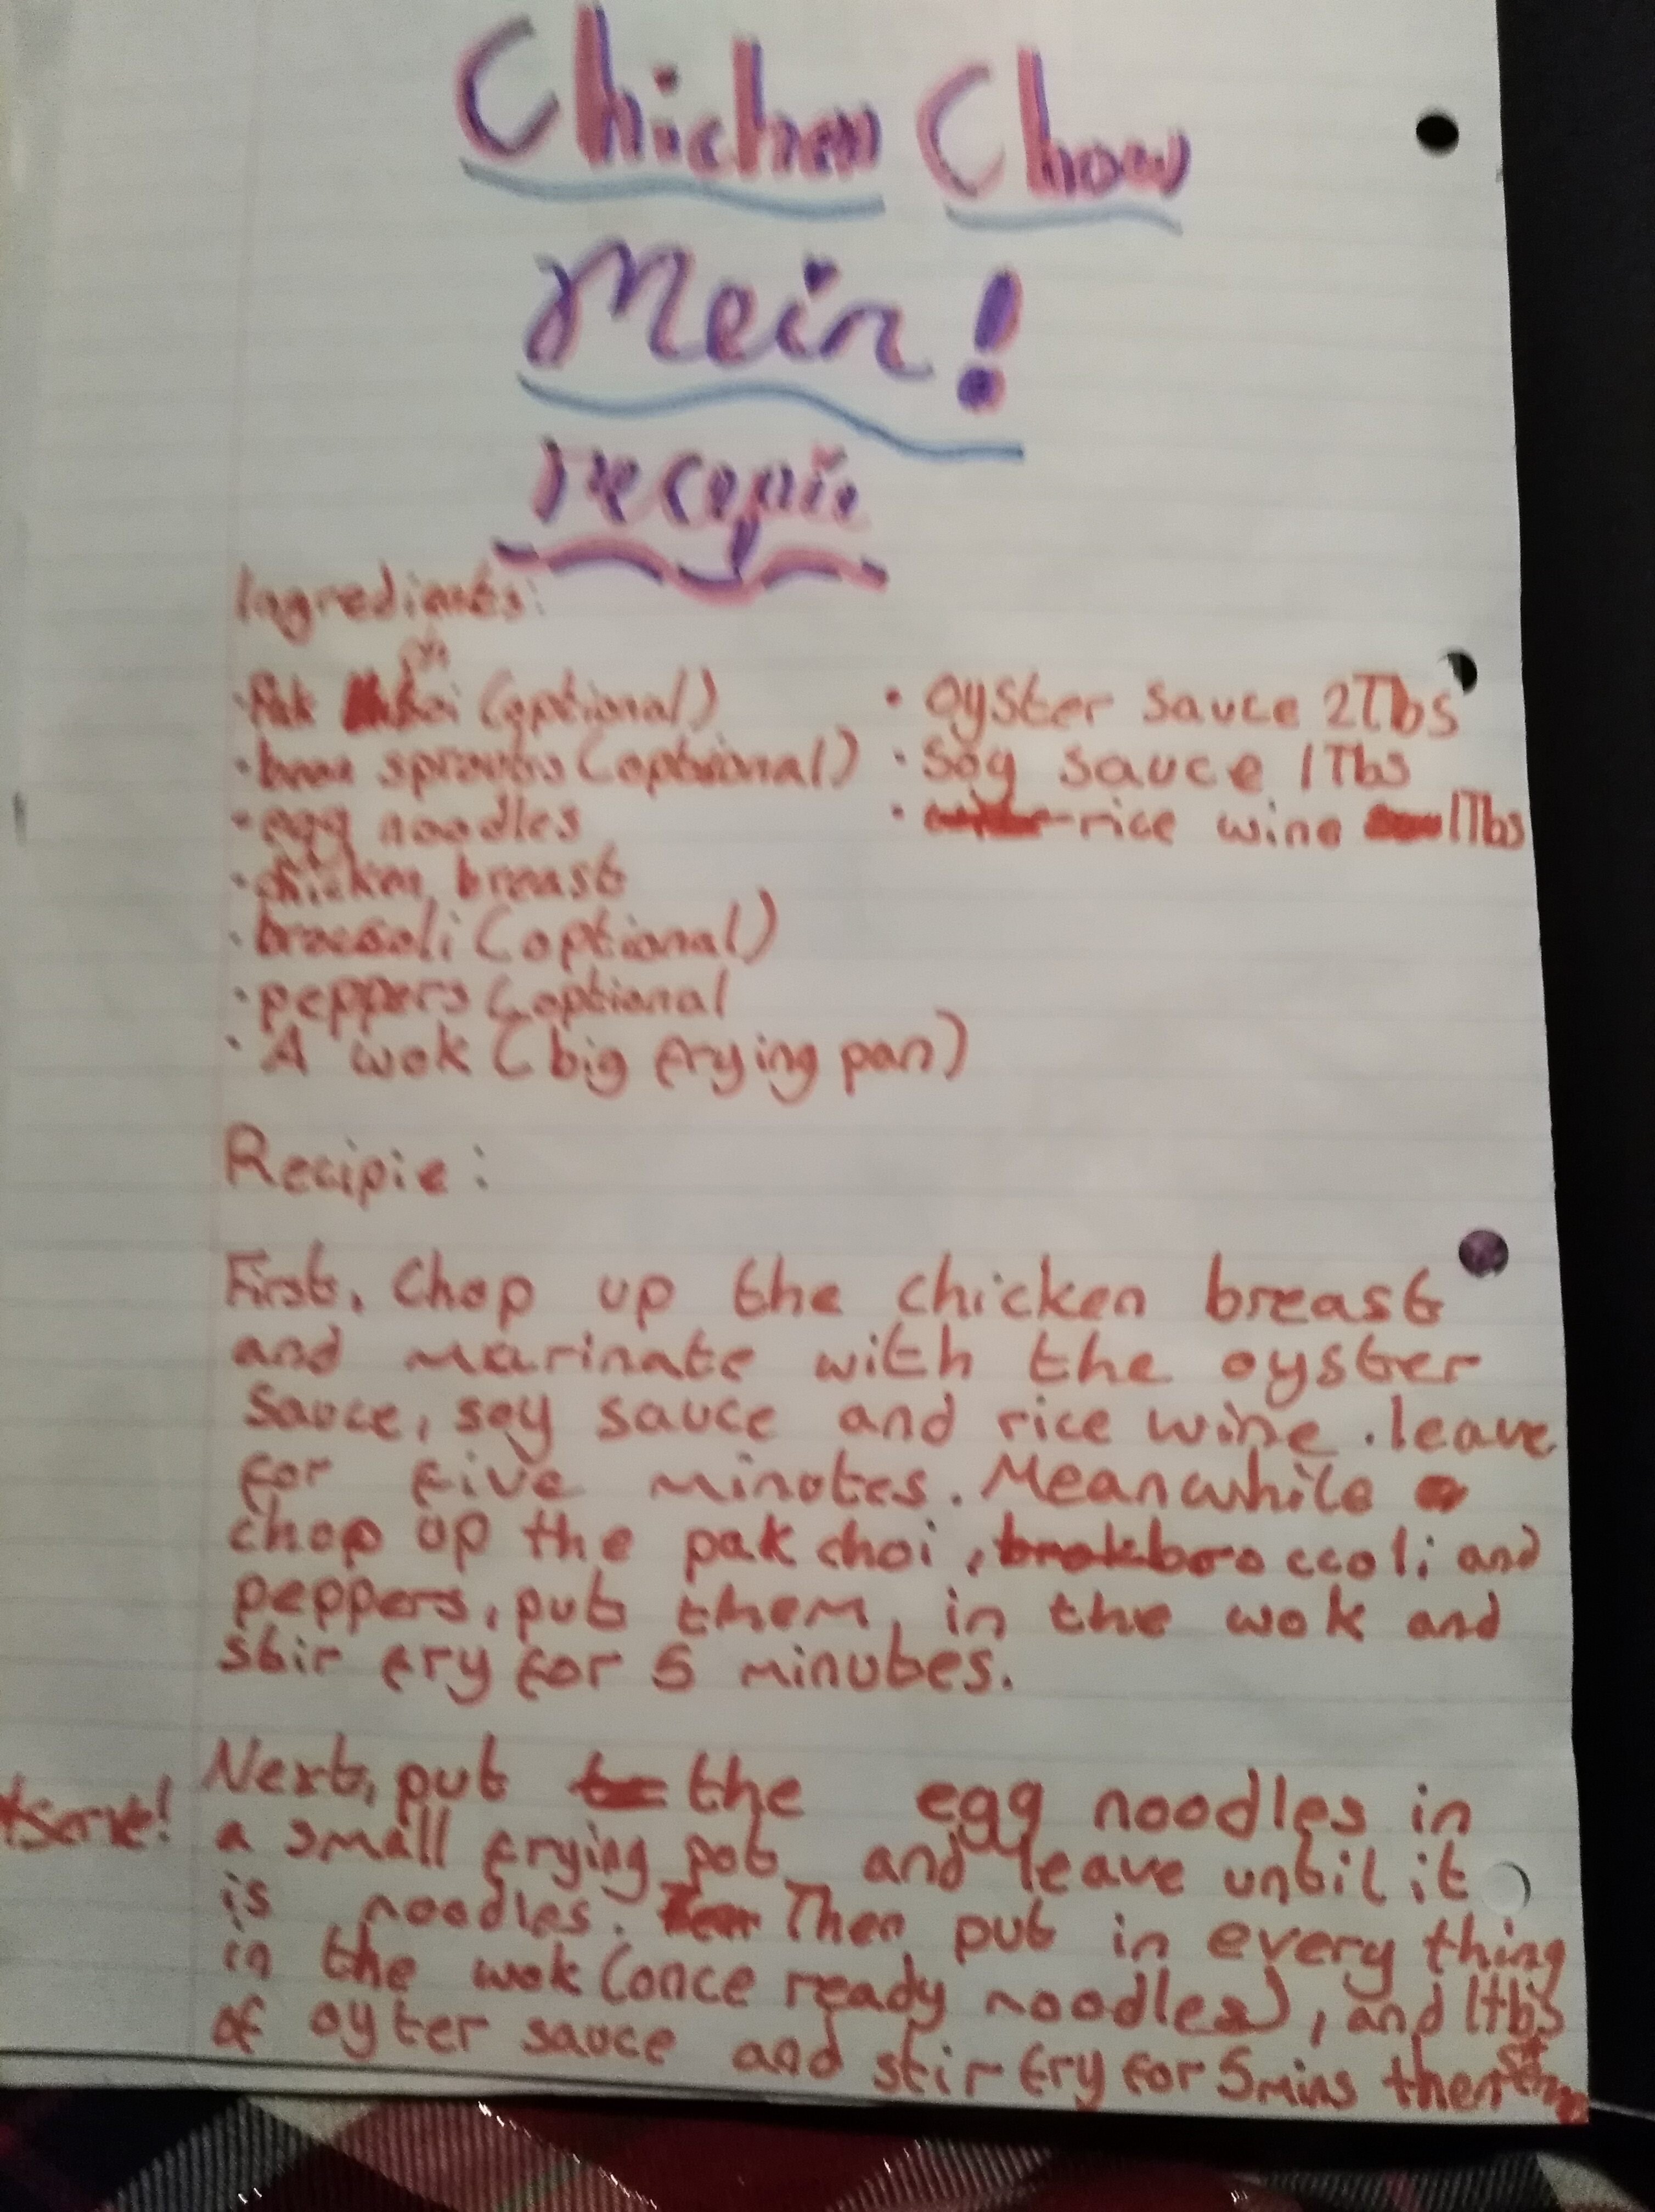 Chicken Chow
Mein!
recepie
Ingredients:
ch
·Pak oi (optional)
·bean sprouts (optional)
·egg noodles
·chicken breast
·broccoli (optional)
·peppers (optional
·A wok (big frying pan)
• oyster sauce 2Tbs
·Soy sauce 1Tbs
·rice wine 1Tbs
Recipie:
First, Chop up the chicken breast
and marinate with the oyster
sauce, soy sauce and rice wine. leave
for five minutes. Meanwhile
chop up the pak choi, broccoli and
peppers, put them in the wok and
stir fry for 5 minutes.
Next, put the egg noodles in
a small frying pot and leave until it
is noodles. Then put in every thing
in the wok (once ready noodles), and 1tbs
of oyter sauce and stir fry for 5mins then
serve!